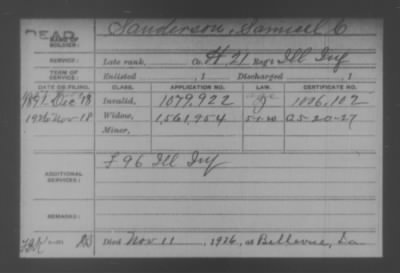 DEAD
NAME OF SOLDIER: Sanderson, Samuel C
SERVICE: Late rank, Co. H, 21 Reg't Ill Inf
TERM OF SERVICE: Enlisted , 1 Discharged , 1
DATE OF FILING. CLASS. APPLICATION NO. LAW. CERTIFICATE NO.
1891 Dec 18 Invalid, 1079,922 1096,102
1926 Nov 18 Widow, 1,561,954 5-1-20 A 5-20-27
Minor,
ADDITIONAL SERVICES: F 96 Ill Inf
REMARKS:
Died Nov 11, 1926, at Bellevue, Ia